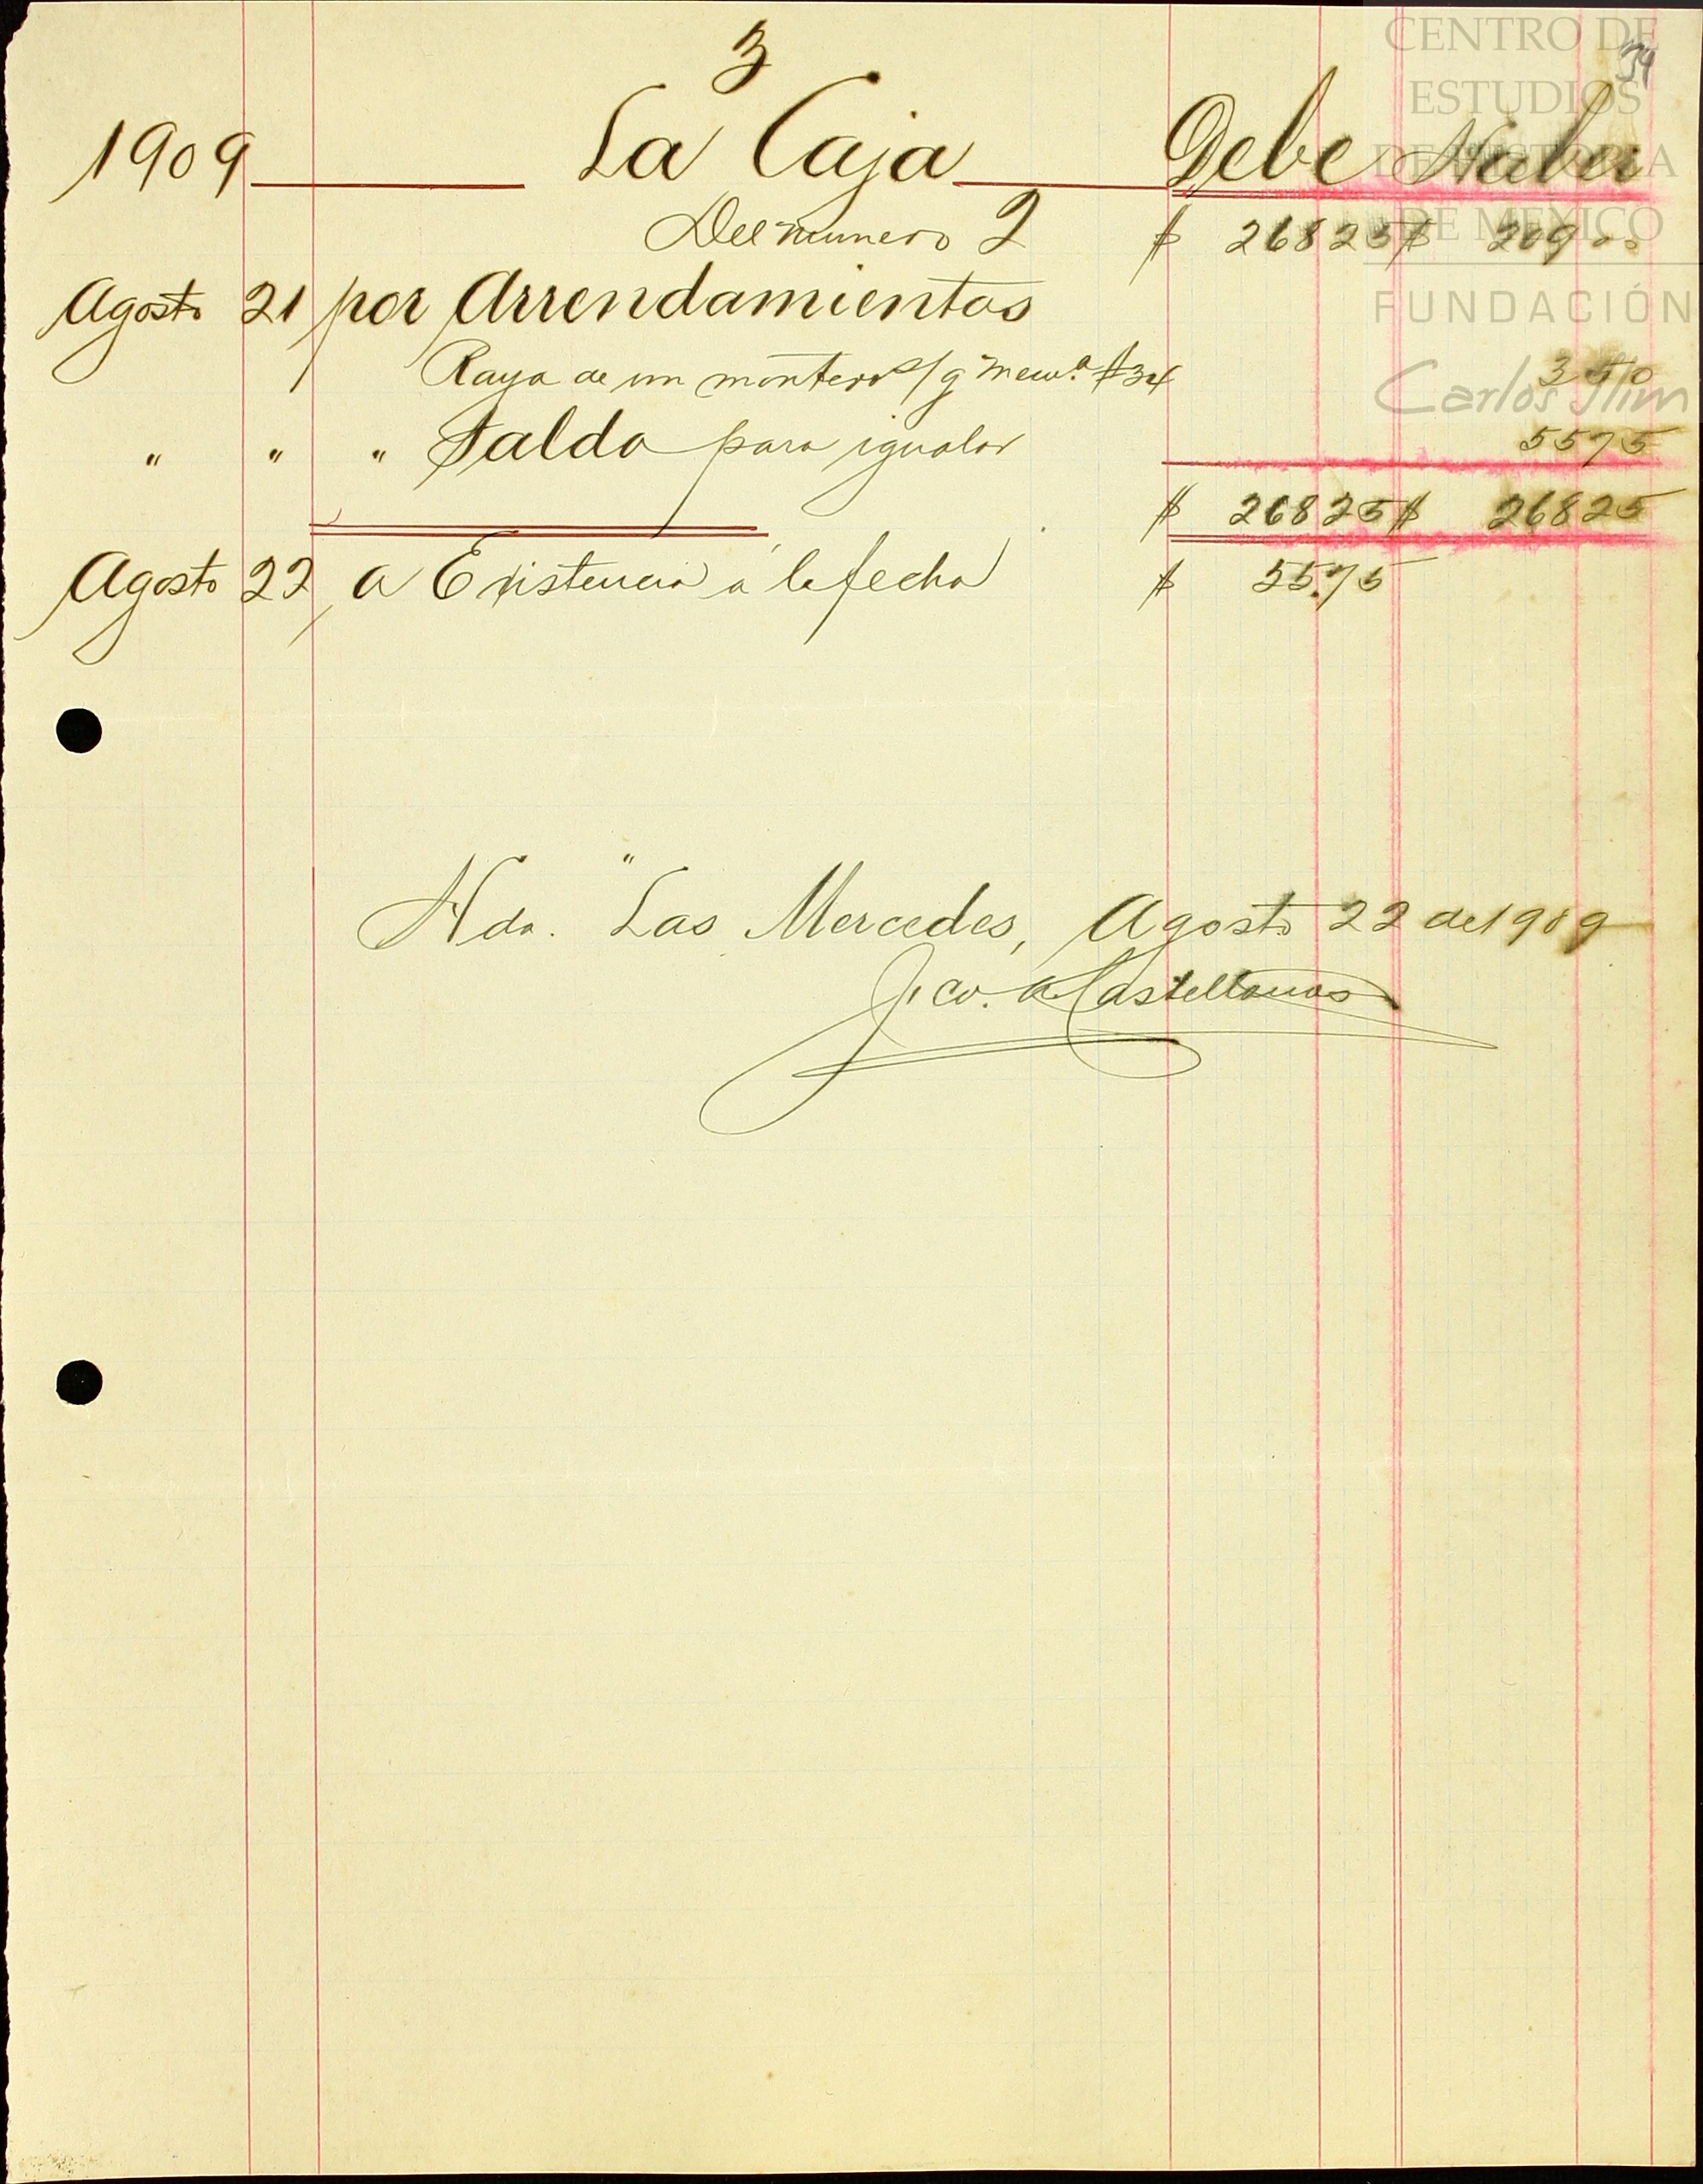 3
34
1909 La Caja Debe Haber
Del numero 2 $ 268 25 $ 209 00
Agosto 21 por Arrendamientos
Raya de un montero s/g mem.a #34 3 50
" " " Saldo para igualar 55 75
$ 268 25 $ 268 25
Agosto 22 a Existencia a la fecha $ 55.75
Hda. "Las Mercedes, Agosto 22 de 1909
Fco. A. Castellanos
CENTRO DE
ESTUDIOS
DE HISTORIA
DE MEXICO
FUNDACIÓN
Carlos Slim